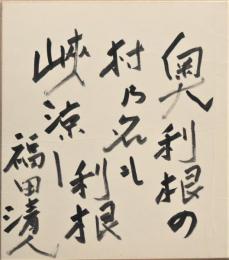 奥利根の
村の名も
利根
峡涼し
福田清人